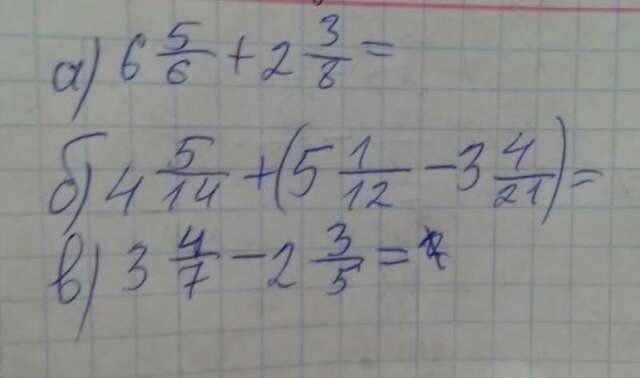 а) 6 5/6 + 2 3/8 =
б) 4 5/14 + (5 1/12 - 3 4/21) =
в) 3 4/7 - 2 3/5 =